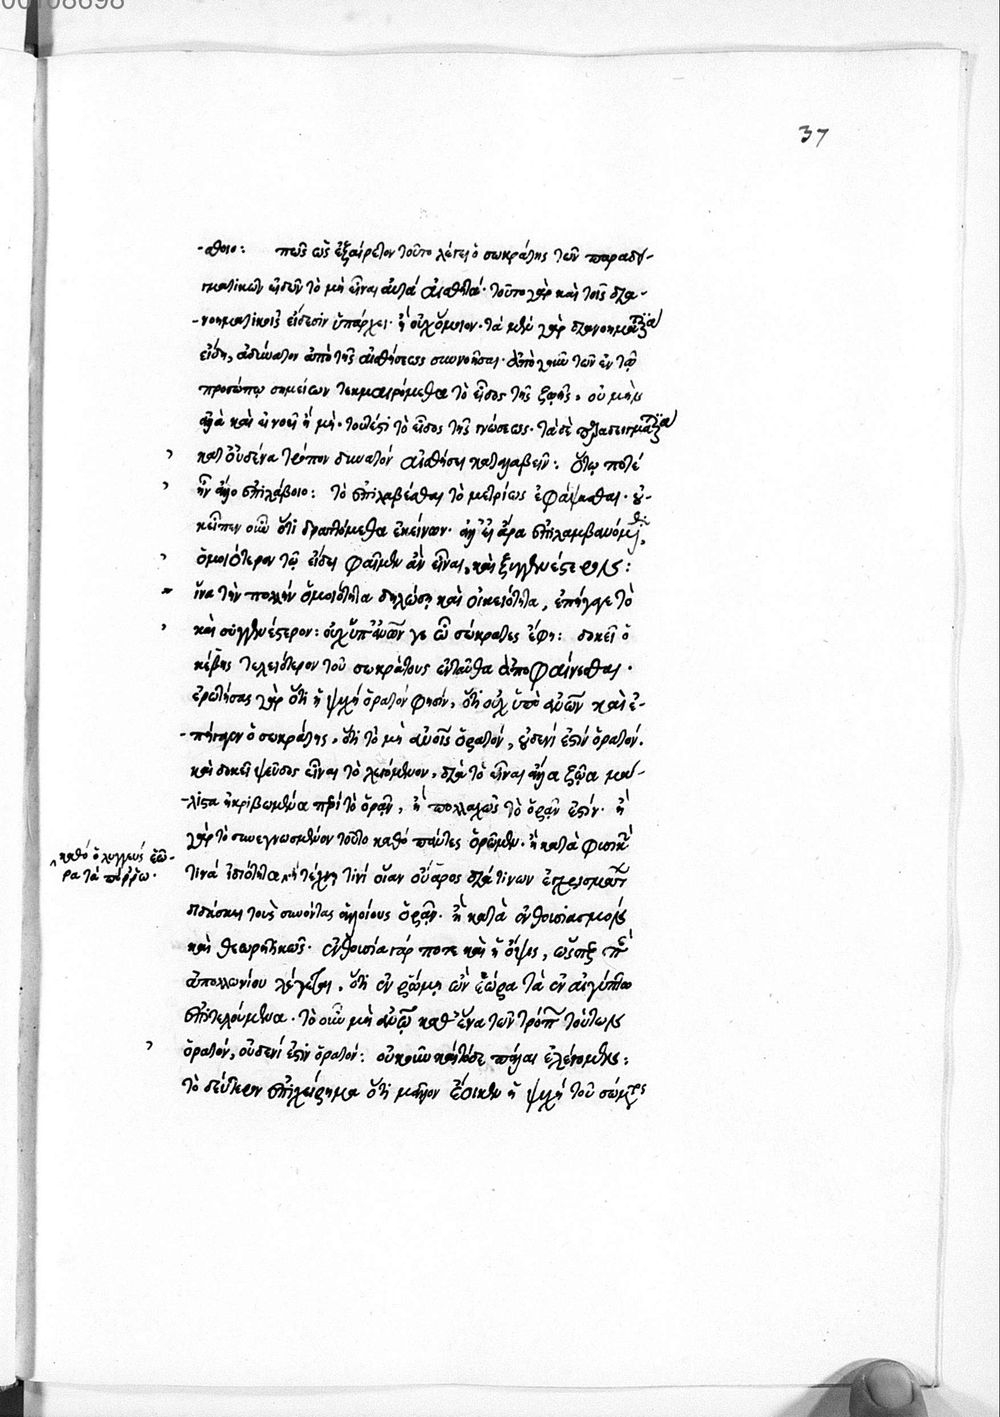 00108698
37
-σθοιο: πῶς ὡς ἐξαίρετον τοῦτο λέγει ὁ σωκράτης τῶν παραδει-
γματικῶν εἰδῶν τὸ μὴ εἶναι αὐτὰ αἰσθητά· τοῦτο γὰρ καὶ τοῖς δια-
-νοηματικοῖς εἴδεσιν ὑπάρχει· ἢ οὐχ ὅμοιον· τὰ μὲν γὰρ διανοηματικὰ
εἴδη, ἀδύνατον ἀπὸ τῆς αἰσθήσεως συννοῆσαι· ἀπὸ γοῦν τῶν ἐν τῷ
προσώπῳ σημείων τεκμαιρόμεθα τὸ εἶδος τῆς ζωῆς, οὐ μὴν
ἀλλὰ καὶ εἰ νοεῖ ἢ μὴ· τουτέστι τὸ εἶδος τῆς γνώσεως· τὰ δὲ παραδειγματικὰ
κατ οὐδένα τρόπον δυνατὸν αἰσθήσει καταλαβεῖν: οὔτῳ ποτέ
ἂν ἄλλῳ ἐπιλάβοιο: τὸ ἐπιλαβέσθαι τὸ μετρίως ἐφάψασθαι· οὐ-
κ εἶπεν οὖν ὅτι δραττόμεθα ἐκείνων· ἀλλ εἰ ἄρα ἐπιλαμβανόμεθα.
ὁμοιότερον τῷ εἴδει φαῖμεν ἂν εἶναι, καὶ ξυγγενέστερον:
ἵνα τὴν πολλὴν ὁμοιότητα δηλώσῃ καὶ οἰκειότητα, ἐπήγαγε τὸ
καὶ συγγενέστερον: οὐχ ὑπ' ἀνθρώπων γε ὦ σώκρατες ἔφη: δοκεῖ ὁ
κέβης τελειότερον τοῦ σωκράτους ἐνταῦθα ἀποφαίνεσθαι·
ἐρωτήσας γὰρ ὅτι ἡ ψυχὴ ὁρατόν φησίν, ὅτι οὐχ ὑπὸ ἀνθρώπων καὶ ἐ-
-πήγαγεν ὁ σωκράτης, ὅτι τὸ μὴ ἀνθρώποις ὁρατόν, οὐδενί ἐστιν ὁρατόν.
καὶ δοκεῖ ψεῦδος εἶναι τὸ λεγόμενον, διὰ τὸ εἶναι ἄλλα ζῷα μά-
-λιστα ἠκριβωμένα περὶ τὸ ὁρᾶν, ἢ πολλαχῶς τὸ ὁρᾶν ἐστίν· ἢ
γὰρ τὸ συνεγνωσμένον τοῦτο καθό πάντες ὁρῶμεν· ἢ κατὰ φυσικήν
καθό ὁ λυγγεύς ἑώ-
ρα τὰ πόρρω·
τινά ἰδιότητα, ἢ τέχνῃ τινὶ οἵαν οὐάρος διά τινων ἐγχρισμάτων
ποιήσει τοὺς συνόντας ἀλλοίους ὁρᾶν· ἢ κατὰ ἐνθουσιασμούς
καὶ θεωρητικῶς· ἐνθουσιᾷ γάρ ποτε καὶ ἡ ὄψις, ὥσπερ περὶ
ἀπολλωνίου λέγεται, ὅτι ἐν ῥώμῃ ὢν ἑώρα τὰ ἐν αἰγύπτῳ
ἐπιτελούμενα· τὸ οὖν μὴ ἀνθρώπῳ καθ' ἕνα τῶν τρόπων τούτων
ὁρατόν, οὐδενί ἐστιν ὁρατόν: οὐκοῦν καὶ τόδε πάλαι ἐλέγομεν:
τὸ δεύτερον ἐπιχείρημα ὅτι μᾶλλον ἔοικεν ἡ ψυχὴ τοῦ σώματος